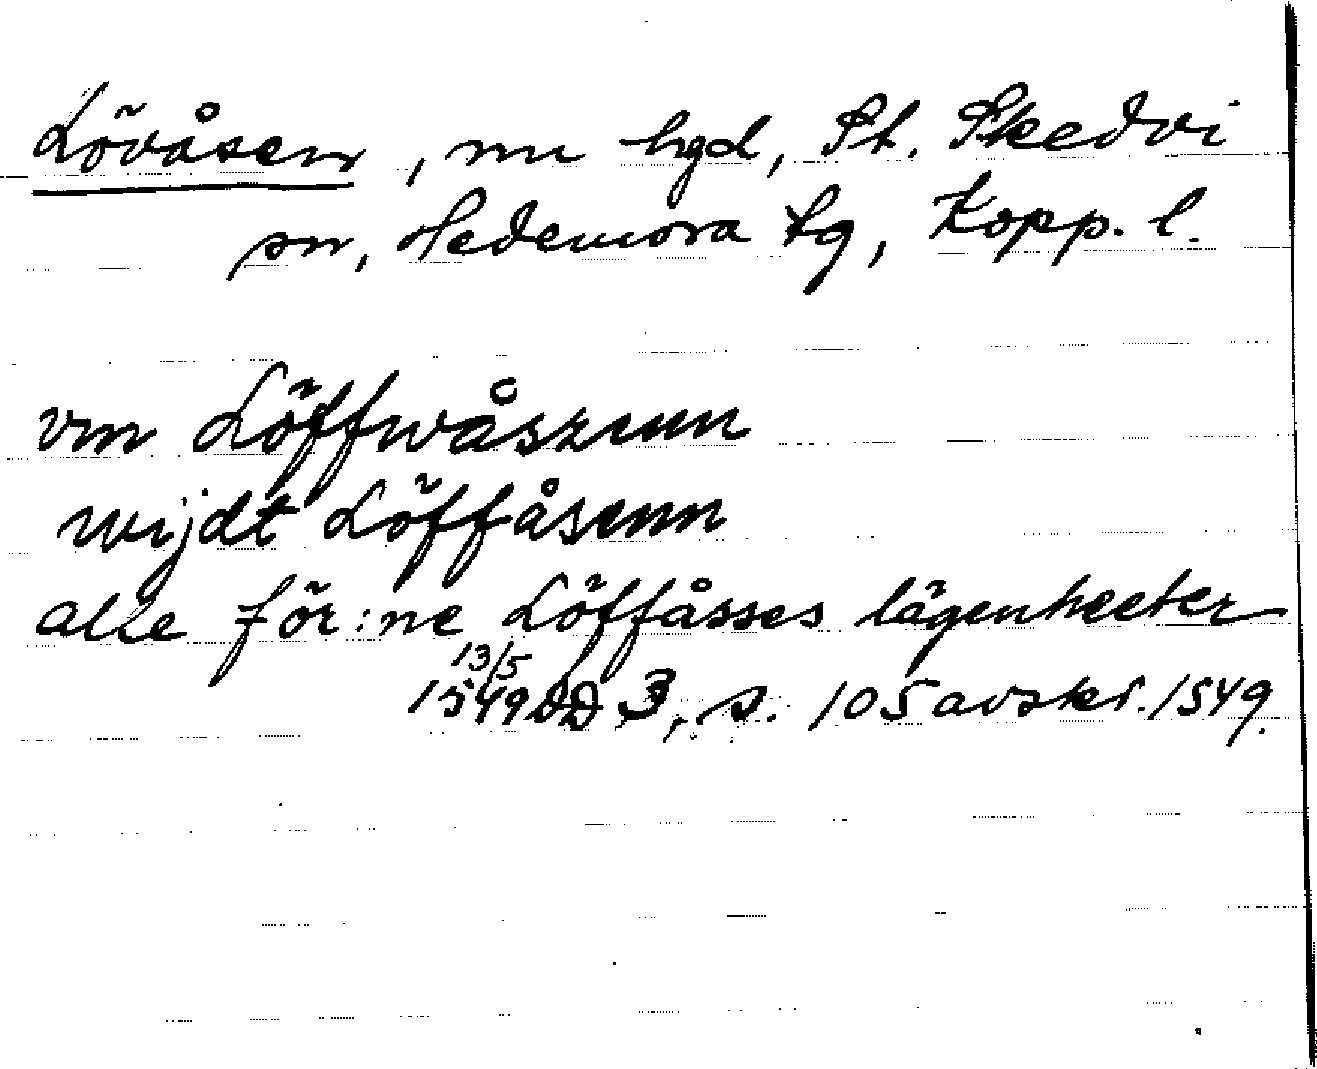 Lövåsen, nu hgd, St. Skedvi
sn, Hedemora tg, Kopp. l.
vm Löffwåszenn
wijdt Löffåsenn
alle för:ne Löffåsses lägenheeter
13/5
1549 DD 3, s. 105 avskr. 1549.